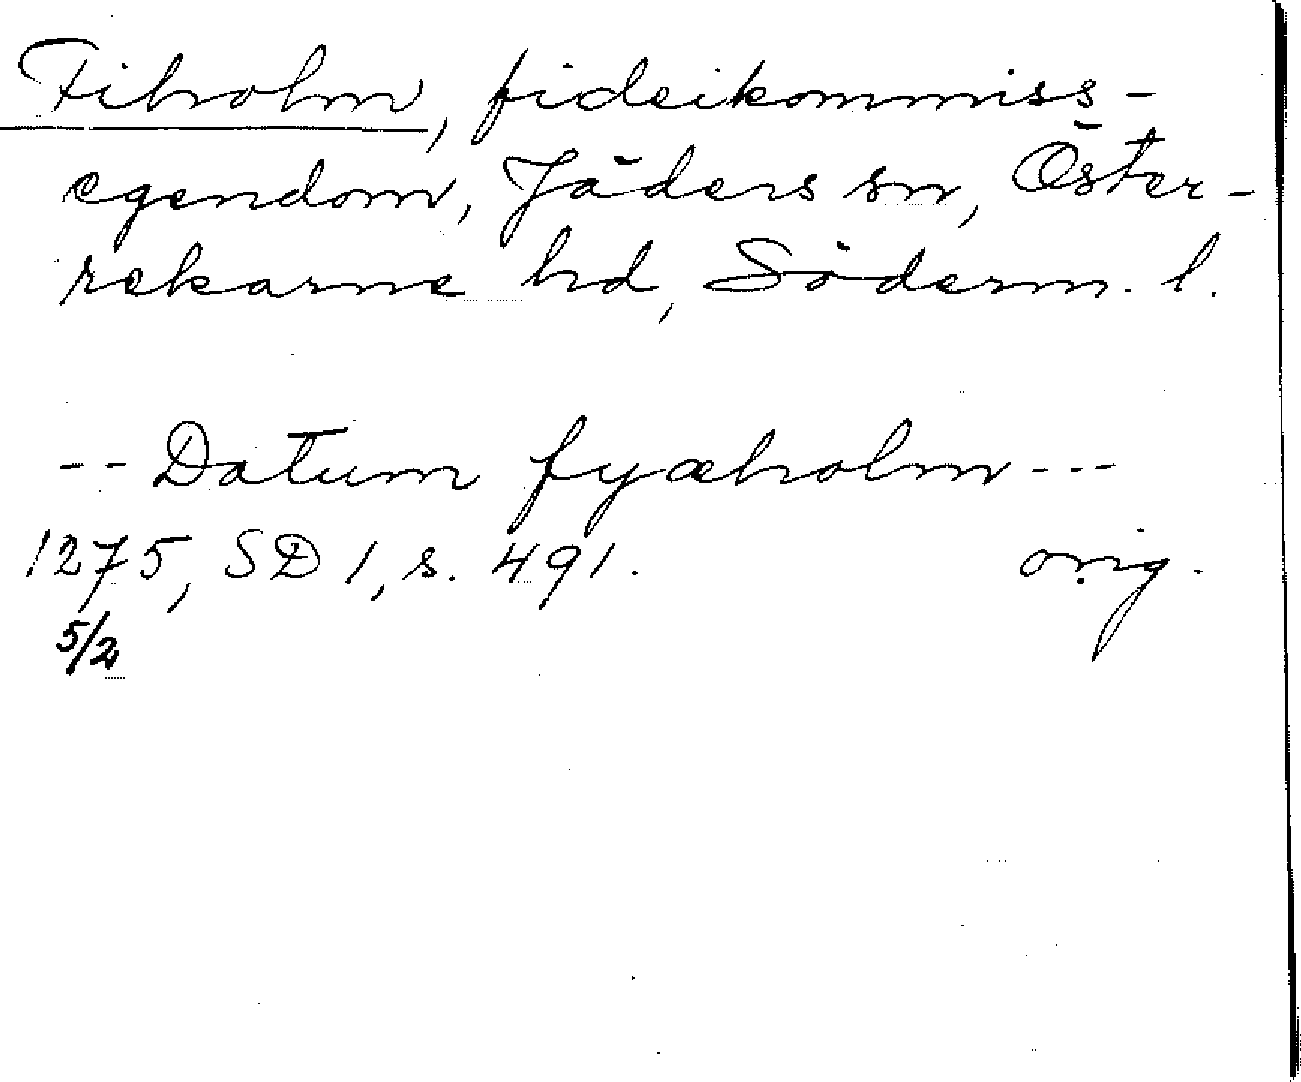 Fiholm, fideikommiss-
egendom, Jäders sn, Öster-
rekarne hd, Söderm. l.
-- Datum fyæholm ---
1275, SD 1, s. 491. orig.
5/2